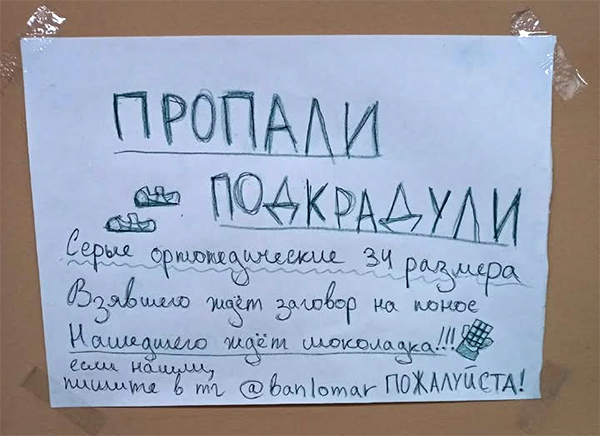 ПРОПАЛИ
ПОДКРАДУЛИ
Серые ортопедические 34 размера
Взявшего ждёт заговор на понос
Нашедшего ждёт шоколадка!!!
если нашли,
пишите в тг @banlomar ПОЖАЛУЙСТА!